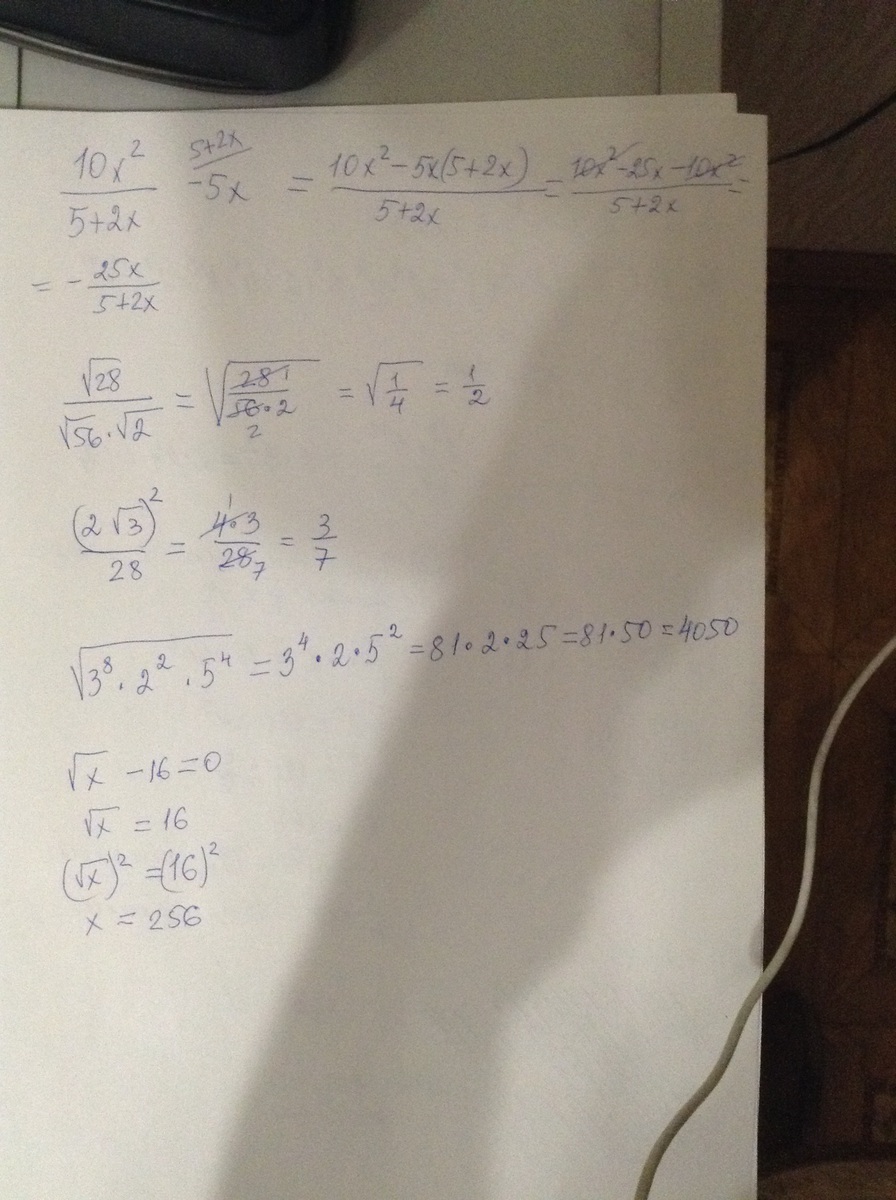 10x²/(5+2x) - 5x^(5+2x/ = (10x² - 5x(5+2x))/(5+2x) = (10x² - 25x - 10x²)/(5+2x) =
= - 25x/(5+2x)
√28/(√56 · √2) = √(28 1/(56 · 2 2)) = √(1/4) = 1/2
(2√3)²/28 = (4 · 3 1)/(28 7) = 3/7
√(3⁸ · 2² · 5⁴) = 3⁴ · 2 · 5² = 81 · 2 · 25 = 81 · 50 = 4050
√x - 16 = 0
√x = 16
(√x)² = (16)²
x = 256